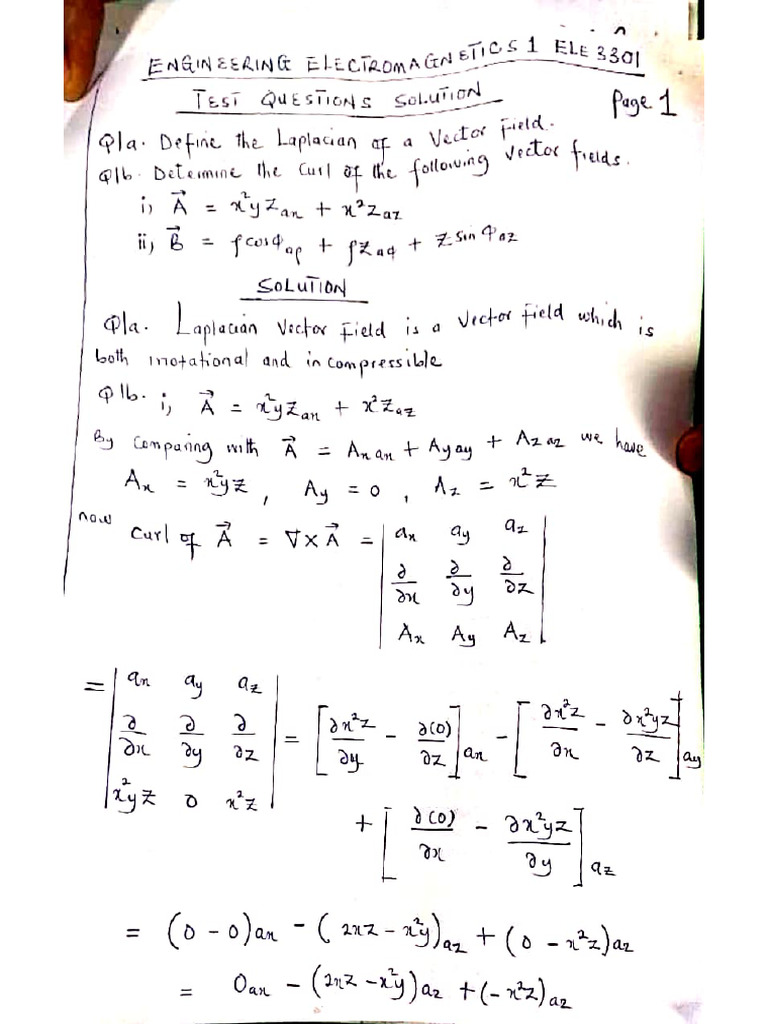 ENGINEERING ELECTROMAGNETICS 1 ELE 3301
TEST QUESTIONS SOLUTION
Page 1
Q1a. Define the Laplacian of a Vector Field.
Q1b. Determine the curl of the following vector fields.
i, A⃗ = x²yz ax + x²z az
ii, B⃗ = ρcosφ aρ + ρz aφ + z sinφ az
SOLUTION
Q1a. Laplacian Vector Field is a Vector Field which is
both irrotational and incompressible
Q1b. i, A⃗ = x²yz ax + x²z az
By Comparing with A⃗ = Ax ax + Ay ay + Az az we have
Ax = x²yz, Ay = 0, Az = x²z
now Curl of A⃗ = ∇×A⃗ = | ax ay az |
| ∂/∂x ∂/∂y ∂/∂z |
| Ax Ay Az |
= | ax ay az |
| ∂/∂x ∂/∂y ∂/∂z | = [∂x²z/∂y - ∂(0)/∂z] ax - [∂x²z/∂x - ∂x²yz/∂z] ay
| x²yz 0 x²z |
+ [∂(0)/∂x - ∂x²yz/∂y] az
= (0 - 0)ax - (2xz - x²y)az + (0 - x²z)az
= 0ax - (2xz - x²y)az + (-x²z)az